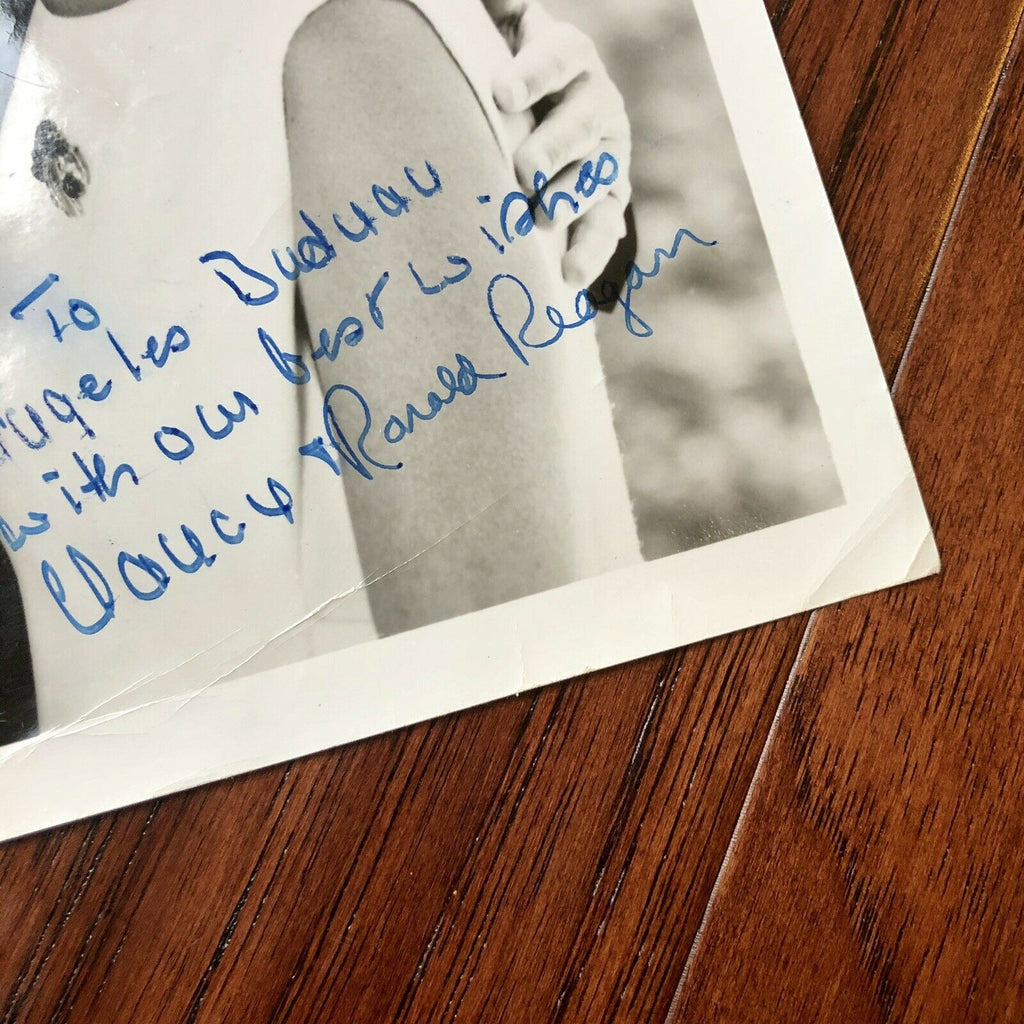 To
Angeles Buduan
with our best wishes
Nancy + Ronald Reagan